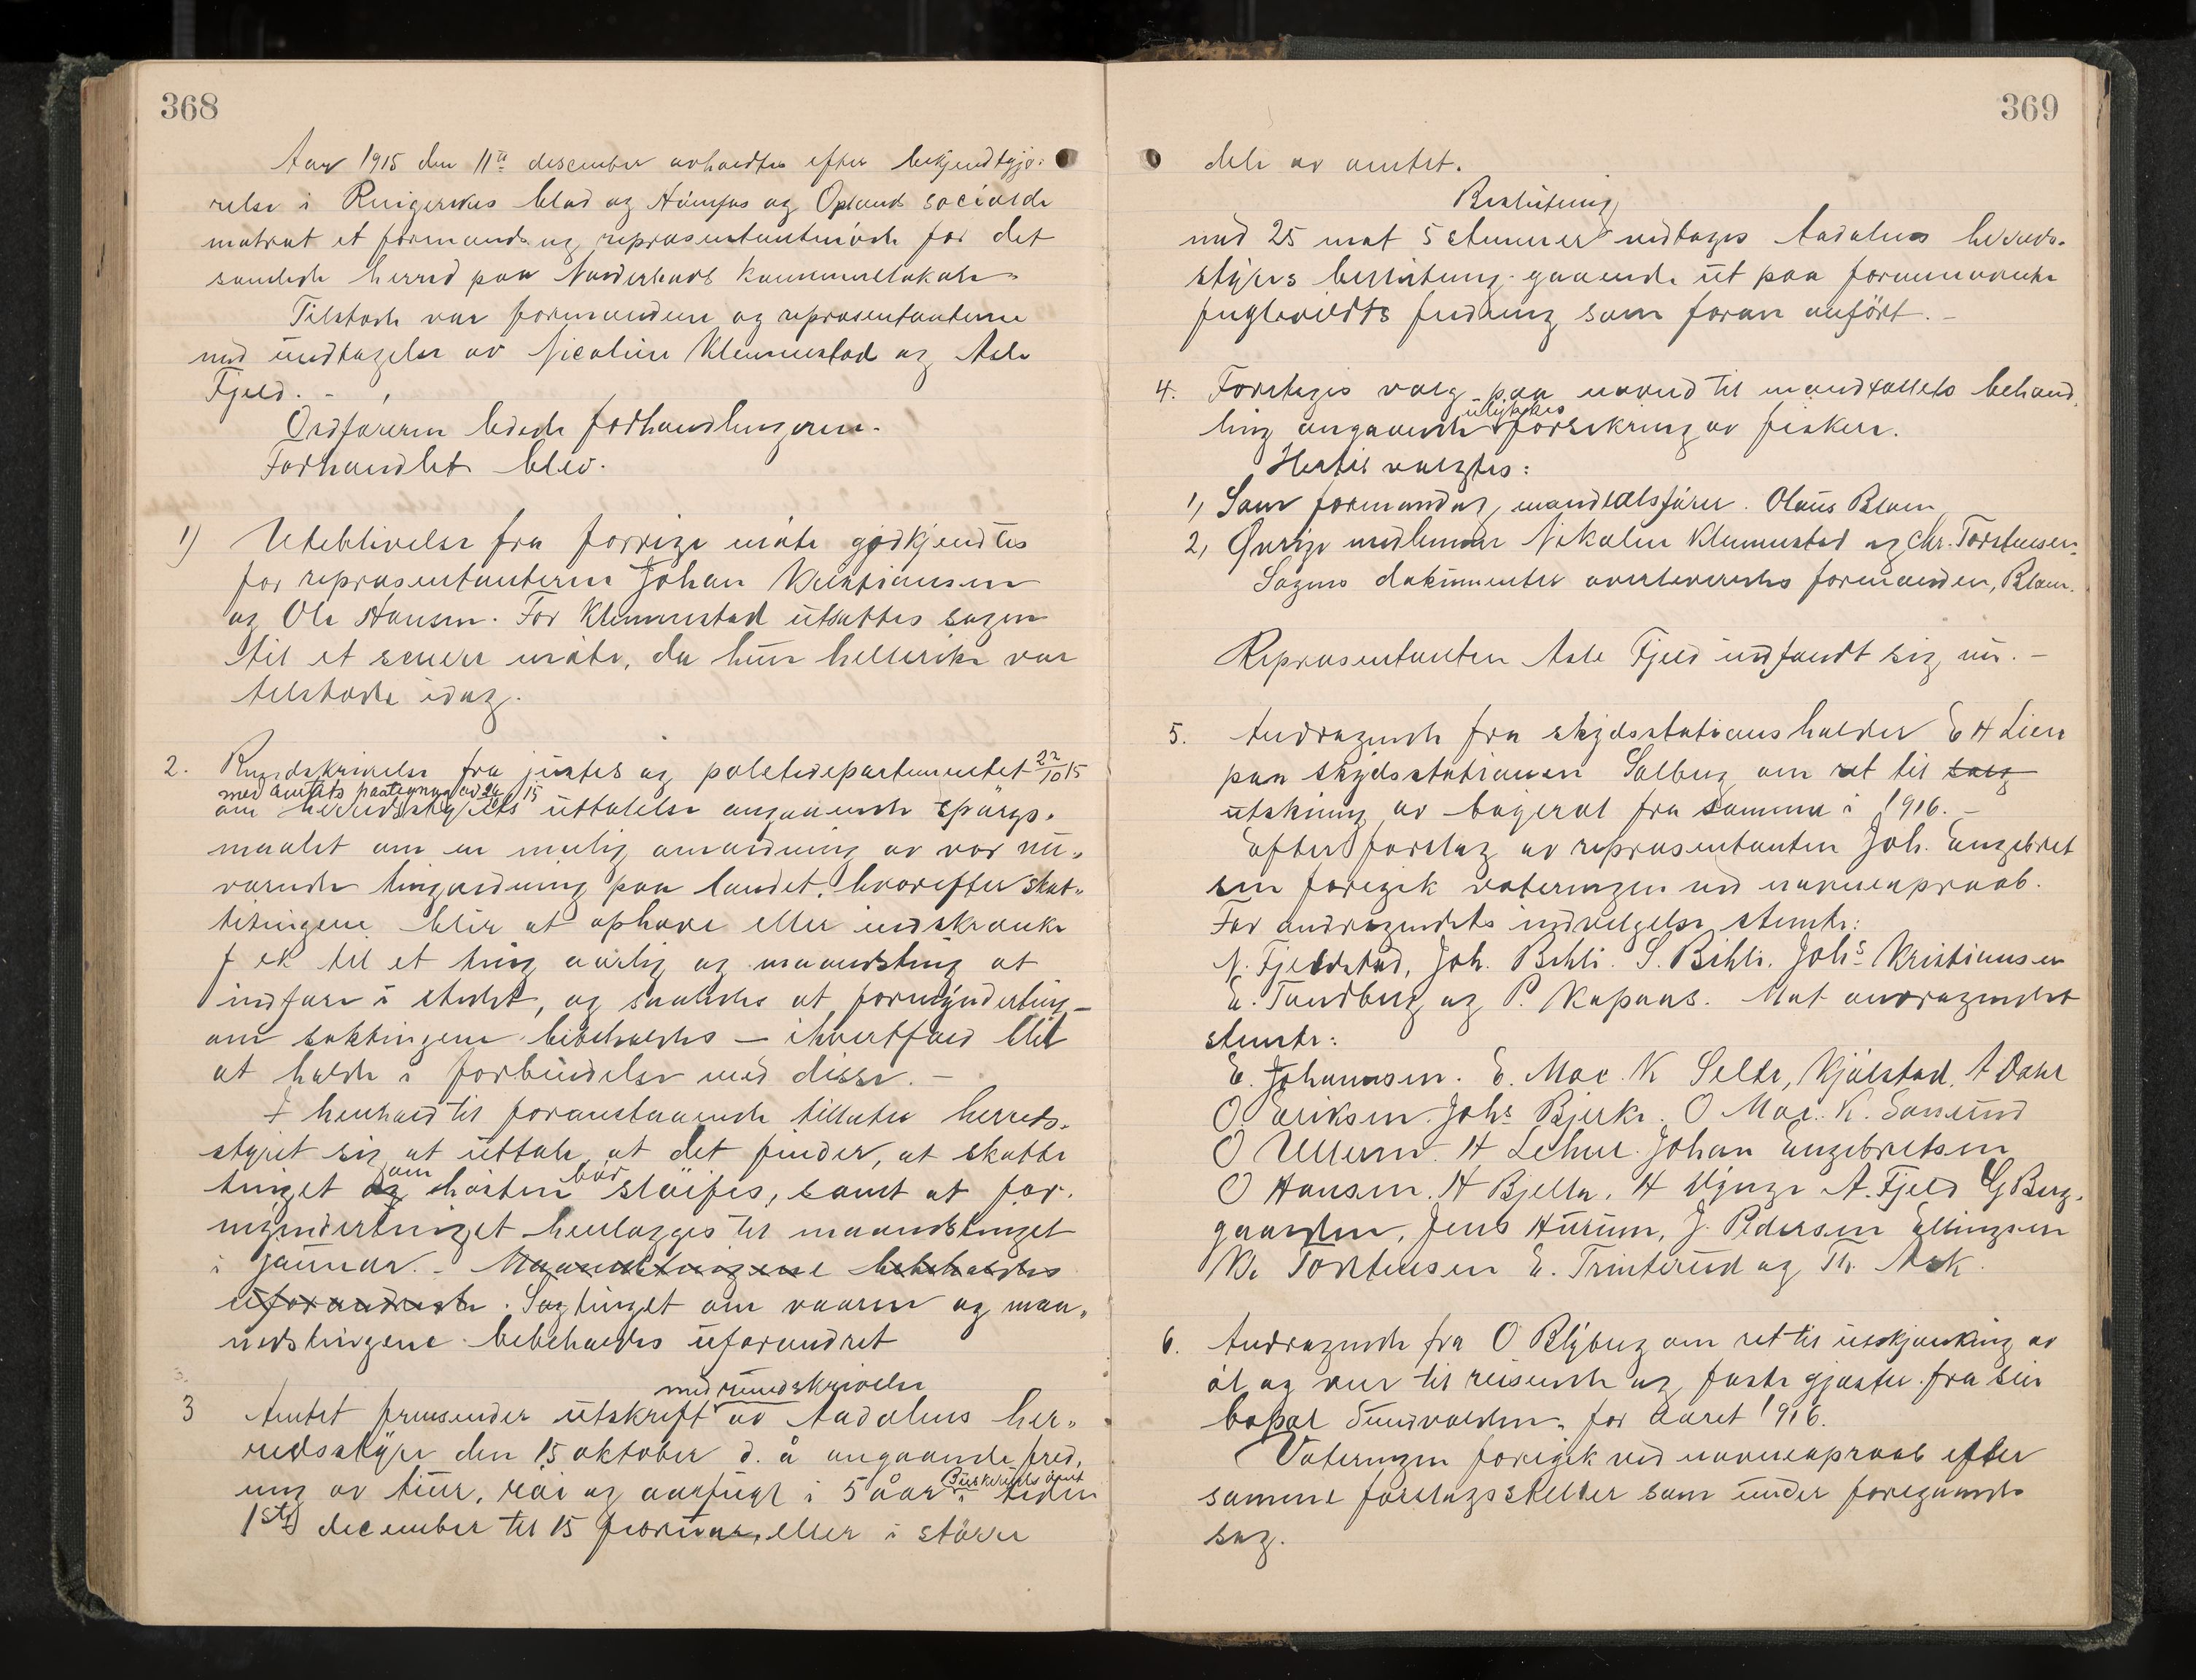 368
Aar 1915 den 11te desember avholdtes efter bekjendtgjø-
relse i Ringerikes blad og Hønefos og Oplands socialde
mokrat et formands og repræsentantmöde for det
samlede herred paa Norderhovs kommunelokale.
Tilstede var formanden og repræsentanterne
med undtagelse av Nicoline Klemmestad og Asle
Fjeld. -
Ordföreren ledede forhandlingerne.
Forhandlet blev.
1) Uteblivelse fra forrige möte godkjendtes
for repræsentanterne Johan Kristiansen
og Ole Hansen. For Klemmestad utsattes sagen
til et senere möte, da hun hellerikke var
tilstede idag.
2. Rundskrivelse fra justis og politidepartementet 22/10 15
med amtets paategning av 26/10 15
om herredsstyrets uttalelse angaaende spörgs-
maalet om en mulig omordning av vor nu-
værende tingordning paa landet, hvorefter skat-
tetingene blir at ophæve eller indskrænke
f ek til et ting aarlig og maanedsting at
indföre i stedet, og saaledes at formynderting-
om saktingene bibeholdes – ihvertfald blir
at holde i forbindelse med disse. -
I henhold til foranstaaende tillater herreds-
styret sig at uttale at det finder, at skatte
tinget om hösten bör slöifes, samt at for-
myndertinget henlægges til maanedstinget
i januar. - Maanedstingene bebeholdes
uforandrede. Sagtinget om vaaren og maa-
nedstingene bebeholdes uforandret
3 Amtet fremsender med rundskrivelse utskrift av Aadalens her-
redsstyre den 15 oktober d. å angaaende fred-
ning av tiur, röi og aarfugl i 5 år i Buskeruds amt tiden
1ste december til 15 februar, eller i större
369
dele av amtet.
Beslutning
med 25 mot 5 stemmer vedtages Aadalens herreds-
styres beslutning gaaende ut paa forannævnte
fuglevildts fredning som foran anfört. -
4. Foretages valg paa nævnd til mandtallets behand-
ling angaaende ulykkes forsikring av fiskere.
Hertil valgtes:
1, Som formand og mandtalsförer. Olaus Blom
2, Övrige medlemmer Nikoline Klemmestad og Chr. Torstensen.
Sagens dokumenter overleveredes formanden, Blom.
Repræsentanten Asle Fjeld indfandt sig nu. -
5. Andragende fra skydsstationsholder E H Lien
paa skydsstationen Solberg om ret til salg
utskjænkning av bayeröl fra samme i 1916. -
Efter forslag av repræsentanten Joh. Engebret
sen foregik voteringen ved navneopraab.
For andragendets indvilgelse stemte:
N. Fjeldstad, Joh. Bihli. S. Bihli. Johs Kristiansen
E. Tandberg og P. Kapaas. Mot andragendet
stemte:
E. Johannesen. E. Moe. K Selte, Kjölstad, A Dahl
O. Eriksen. Johs Bjerke. O Moe. K. Sonerud
O Ullern. H Lehne. Johan Engebretsen
O Hansen. H Bjella, H A. Fjeld G Berg-
gaarden, Jens Hurum, J. Pedersen Ellingsen
Kr Torstensen E. Trinterud og Th. Ask.
6. Andragende fra O Blyberg om ret til utskjænking av
öl og vin til reisende og faste gjæster fra sin
bopæl Sundvolden, for aaret 1916.
Voteringen foregik ved navneopraab efter
samme forslagsstiller som under foregaaende
sag.